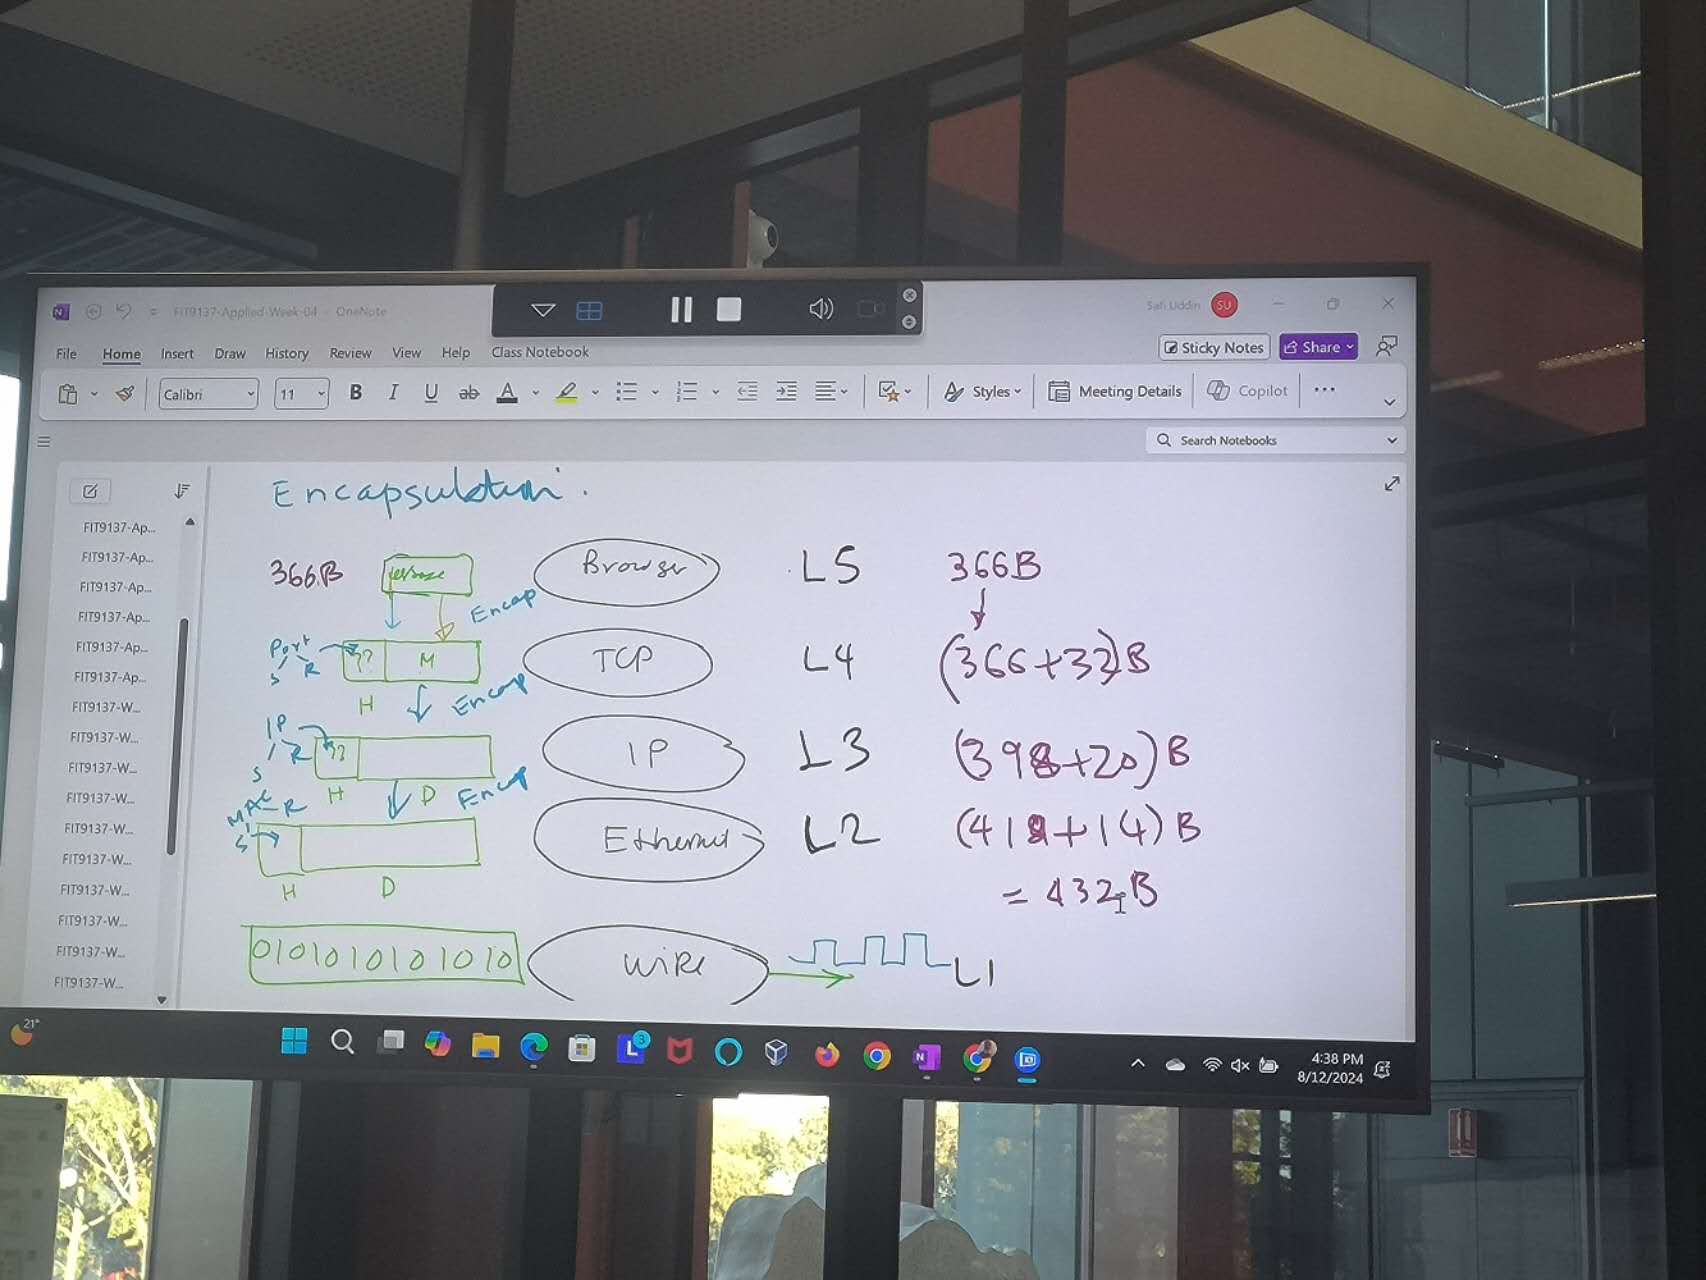 FIT9137-Applied-Week-04 - OneNote
Safi Uddin SU
File Home Insert Draw History Review View Help Class Notebook
Sticky Notes Share
Calibri 11 B I U ab A Styles Meeting Details Copilot ...
Search Notebooks
Encapsulation.
FIT9137-Ap...
FIT9137-Ap...
FIT9137-Ap...
FIT9137-Ap...
FIT9137-Ap...
FIT9137-Ap...
FIT9137-W...
FIT9137-W...
FIT9137-W...
FIT9137-W...
FIT9137-W...
FIT9137-W...
FIT9137-W...
FIT9137-W...
FIT9137-W...
FIT9137-W...
366B Browser L5 366B
Encap
Port S R ?? M TCP L4 (366+32)B
H Encap
IP S R ?? IP L3 (398+20)B
H D Encap
MAC S R Ethernet L2 (418+14)B
H D = 432B
0101010101010 WiRe L1
21°
L 3 N
4:38 PM
8/12/2024